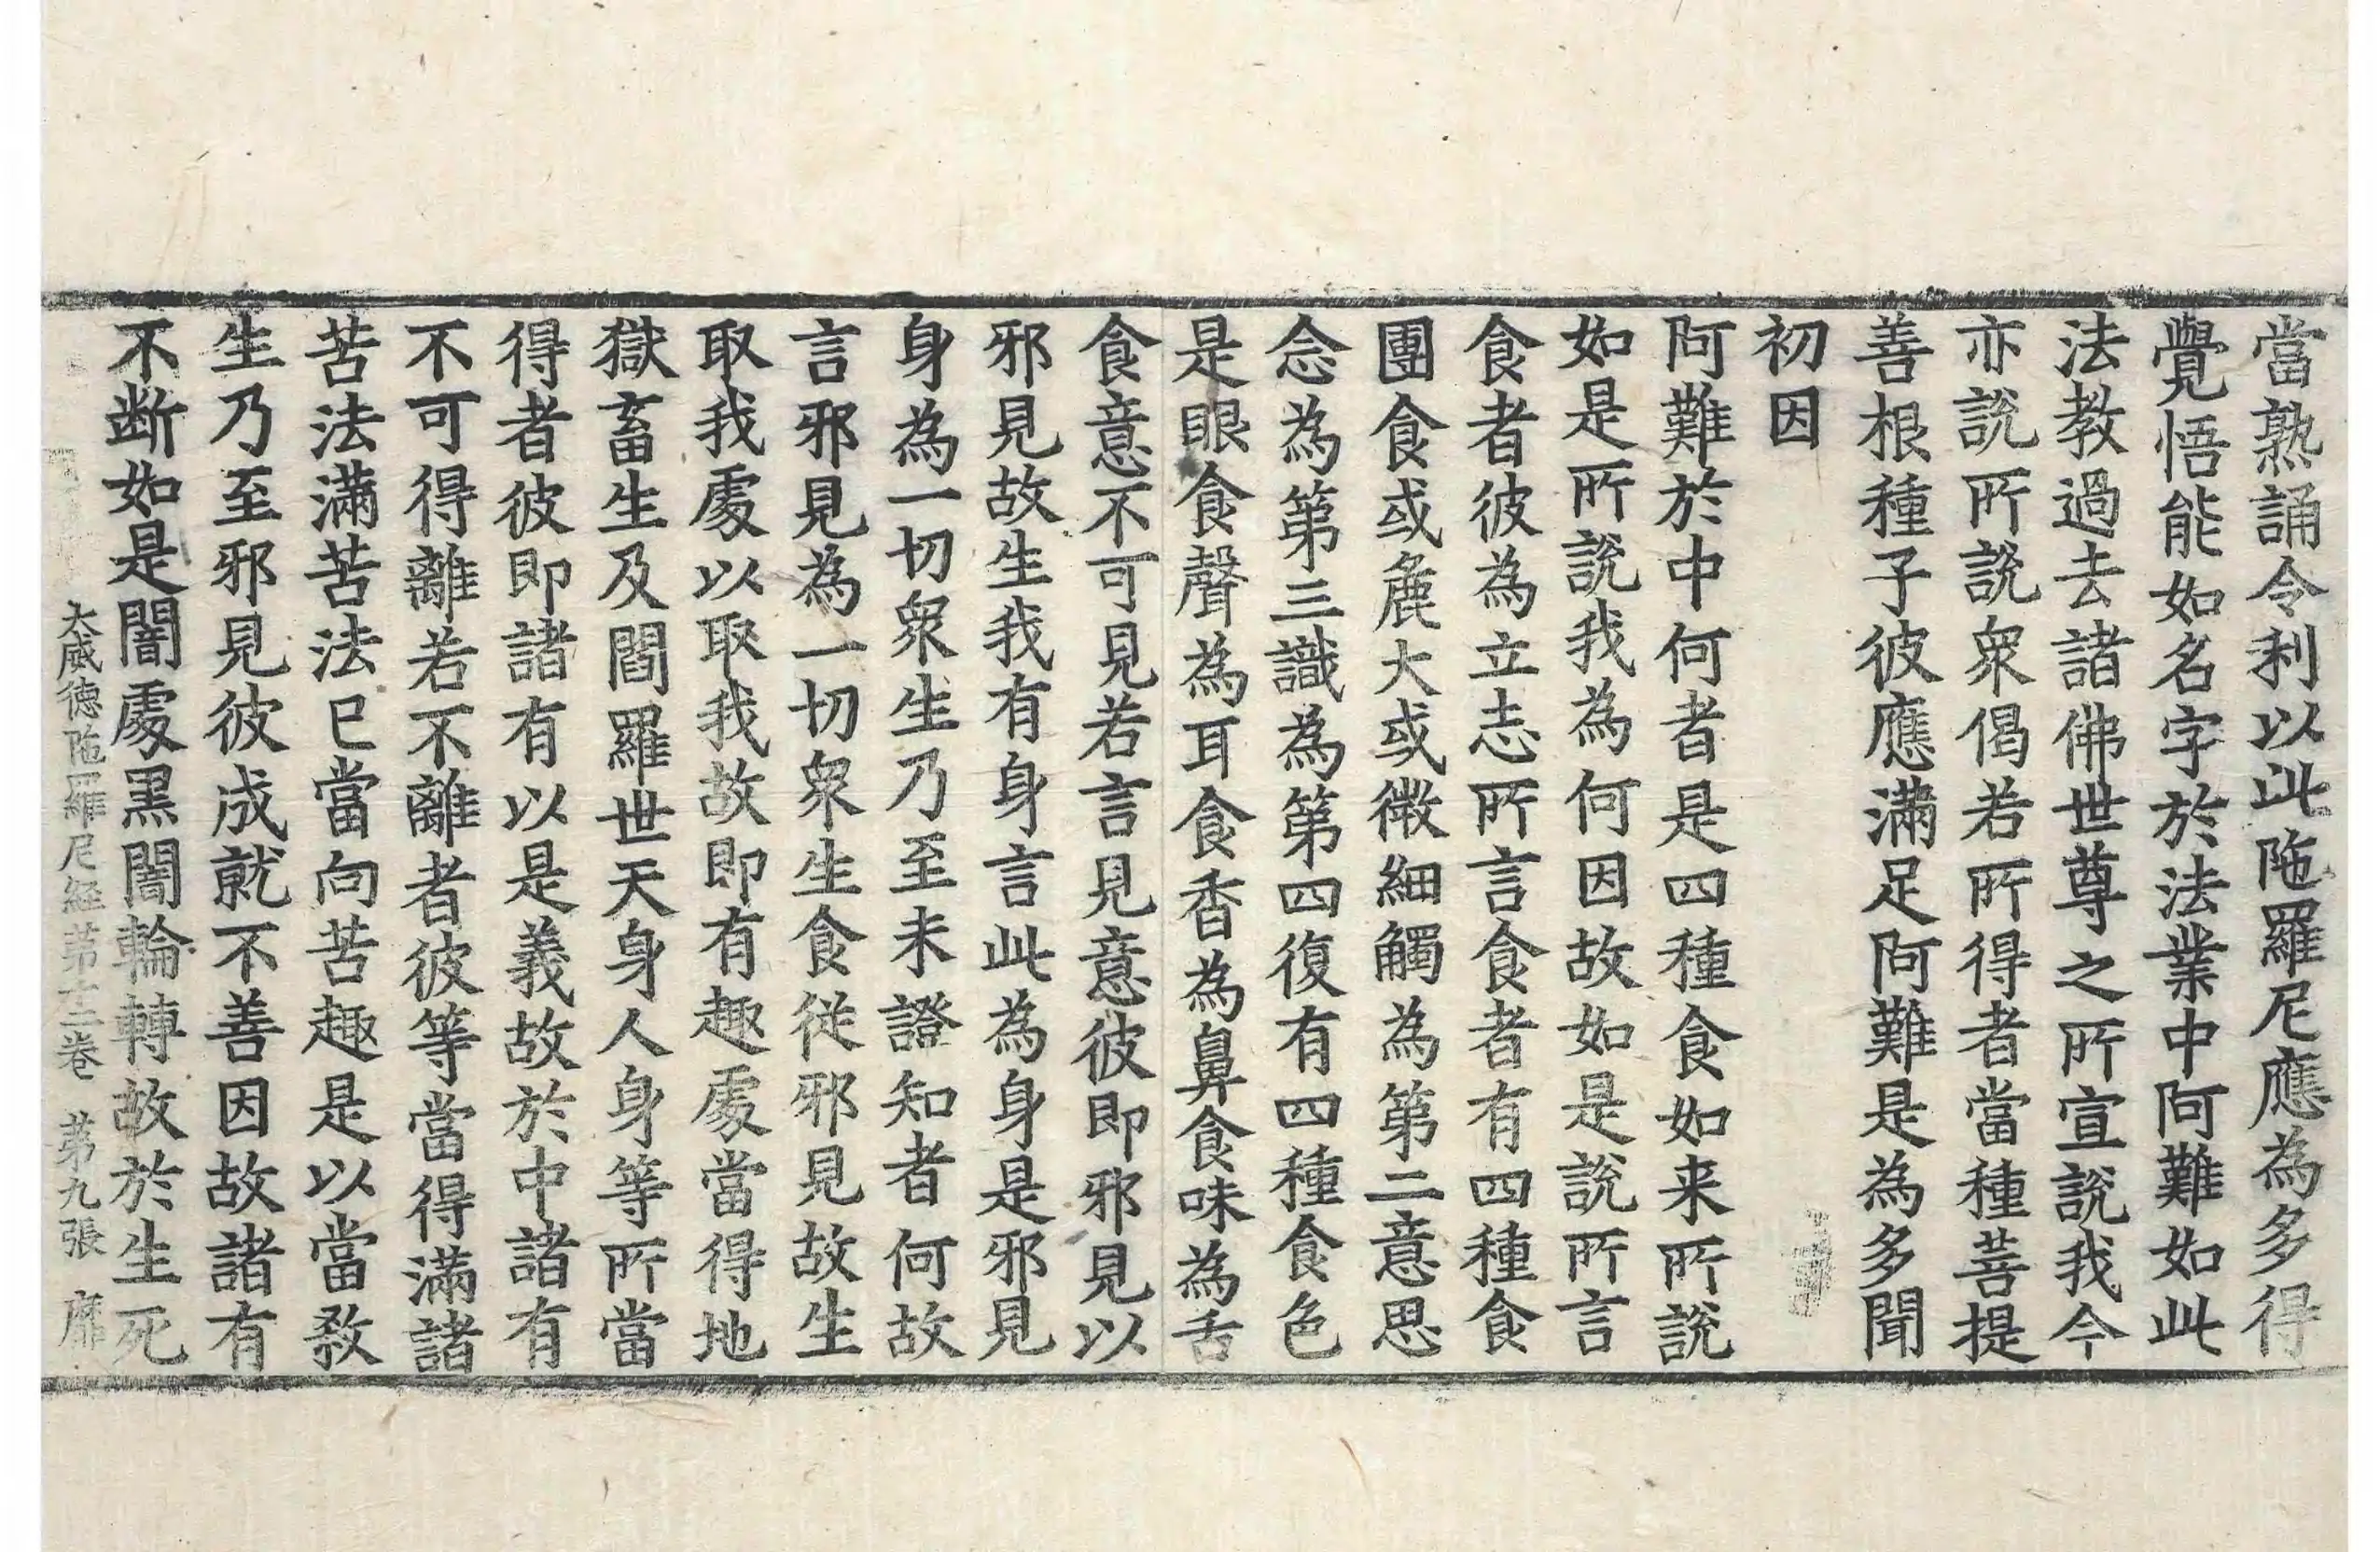 當熟誦令利以此陁羅尼應為多得
覺悟能如名字於法業中阿難如此
法教過去諸佛世尊之所宣說我今
亦說所說衆偈若所得者當種菩提
善根種子彼應滿足阿難是為多聞
初因
阿難於中何者是四種食如来所說
如是所說我為何因故如是說所言
食者彼為立志所言食者有四種食
團食或麁大或微細觸為第二意思
念為第三識為第四復有四種食色
是眼食聲為耳食香為鼻食味為舌
食意不可見若言見意彼即邪見以
邪見故生我有身言此為身是邪見
身為一切衆生乃至未證知者何故
言邪見為一切衆生食従邪見故生
取我處以取我故即有趣處當得地
獄畜生及閻羅世天身人身等所當
得者彼即諸有以是義故於中諸有
不可得離若不離者彼等當得滿諸
苦法滿苦法已當向苦趣是以當教
生乃至邪見彼成就不善因故諸有
不断如是闇處黒闇輪轉故於生死
大威德陁羅尼経第十二卷 第九張 靡